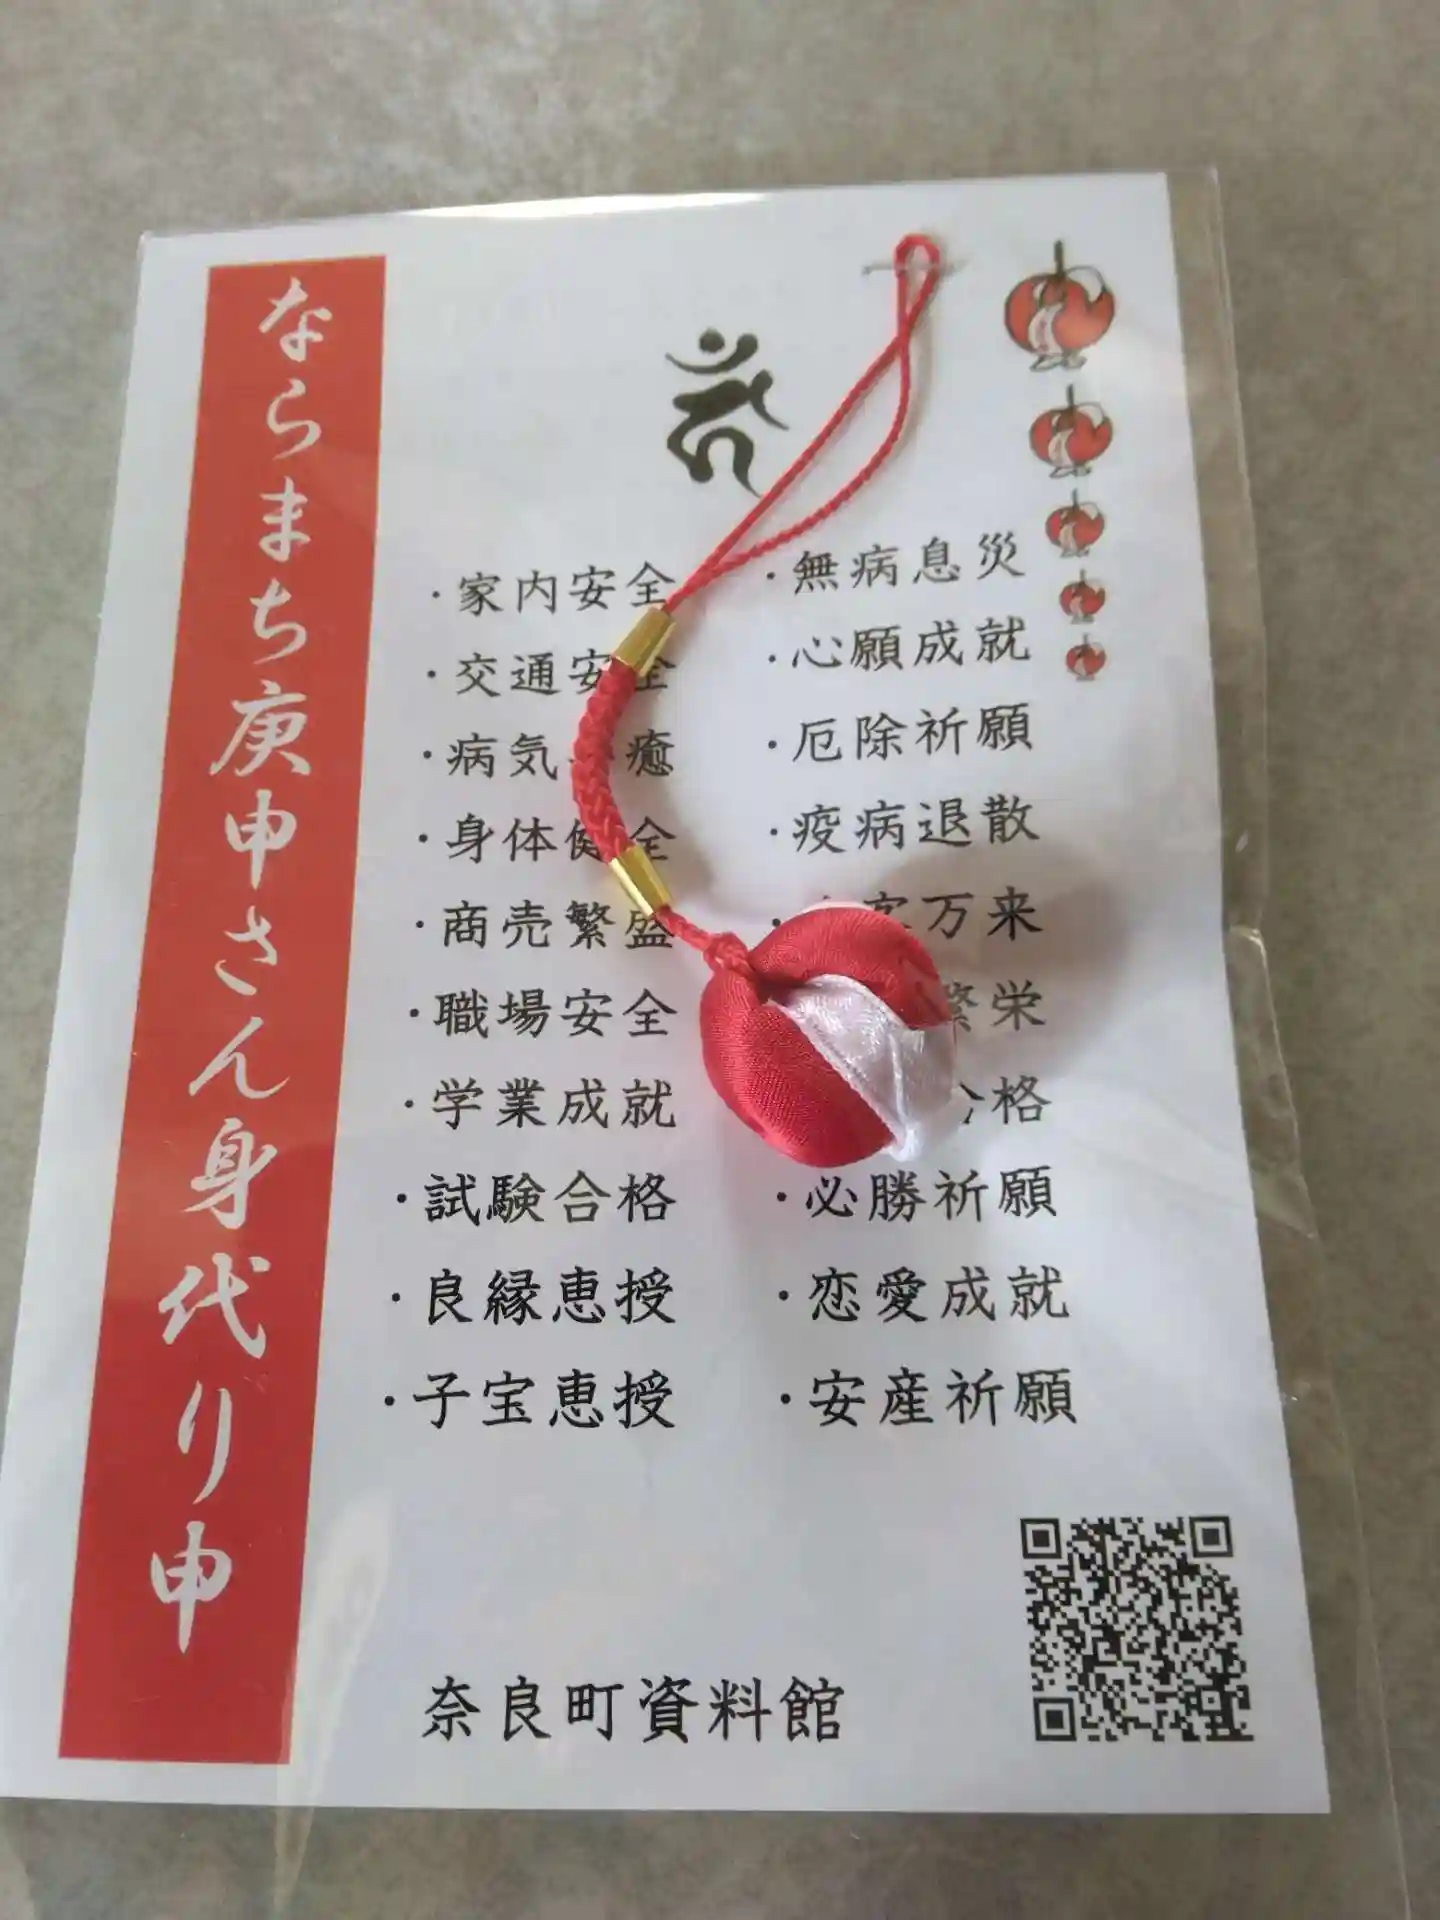 ならまち庚申さん身代り申
・家内安全
・交通安全
・病気 癒
・身体健全
・商売繁盛
・職場安全
・学業成就
・試験合格
・良縁恵授
・子宝恵授
・無病息災
・心願成就
・厄除祈願
・疫病退散
客万来
繁栄
合格
・必勝祈願
・恋愛成就
・安産祈願
奈良町資料館